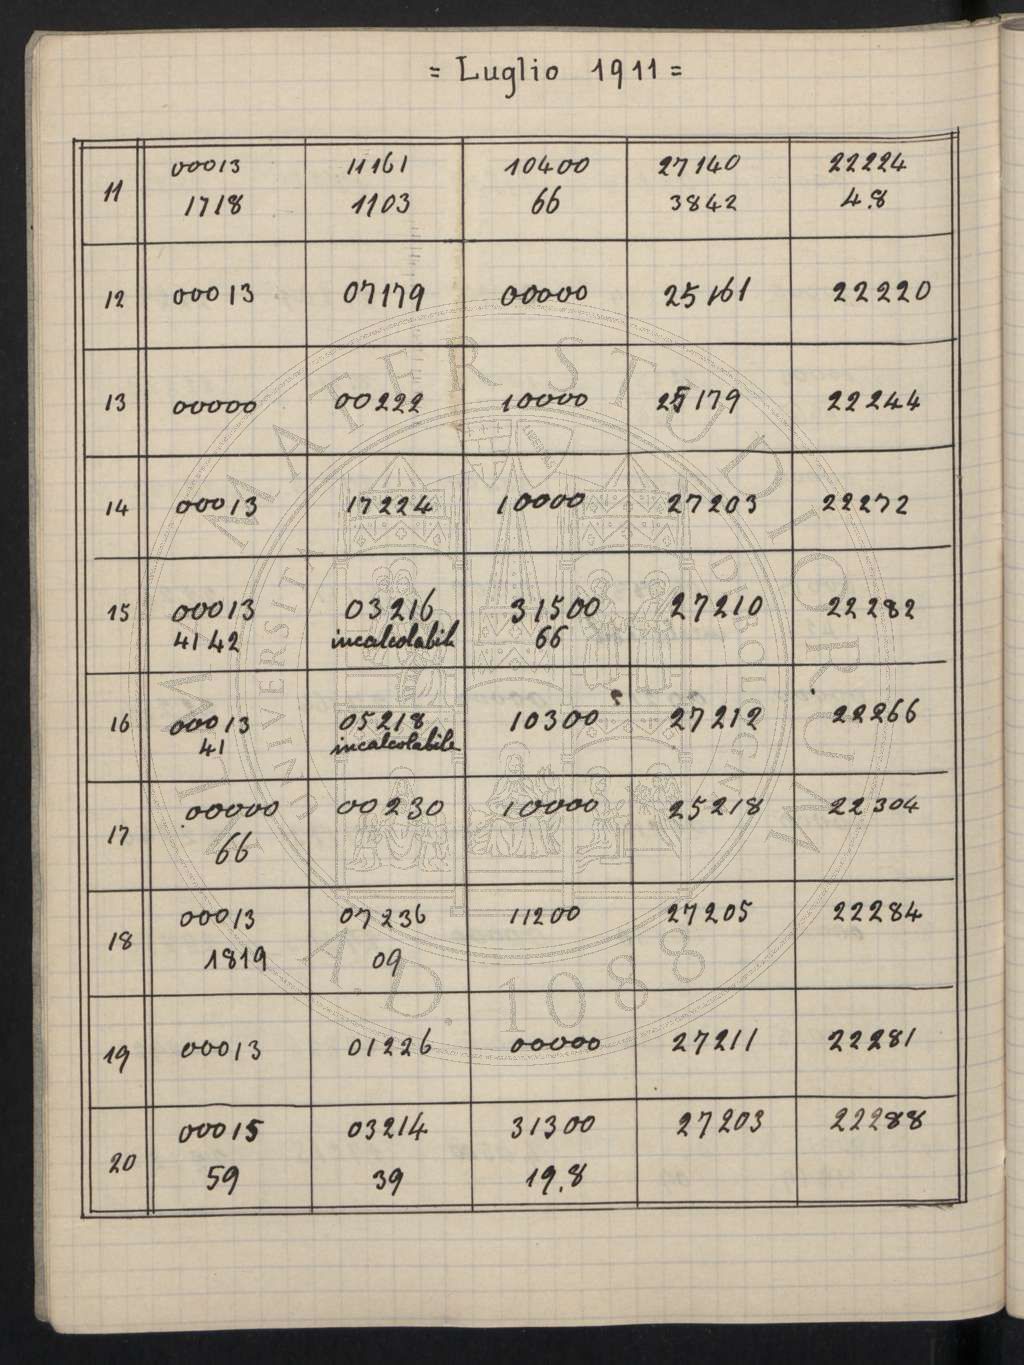 = Luglio 1911 =
11 00013 11161 10400 27140 22224
1718 1103 66 3842 4.8
12 00013 07179 00000 25161 22220
13 00000 00222 10000 25179 22244
14 00013 17224 10000 27203 22272
15 00013 03216 31500 27210 22282
4142 incalcolabile 66
16 00013 05218 10300 ? 27212 22266
41 incalcolabile
17 00000 00230 10000 25218 22304
66
18 00013 07236 11200 27205 22284
1819 09
19 00013 01226 00000 27211 22281
20 00015 03214 31300 27203 22288
59 39 19.8
ALMA MATER STUDIORUM
UNIVERSITÀ DI BOLOGNA
A.D. 1088